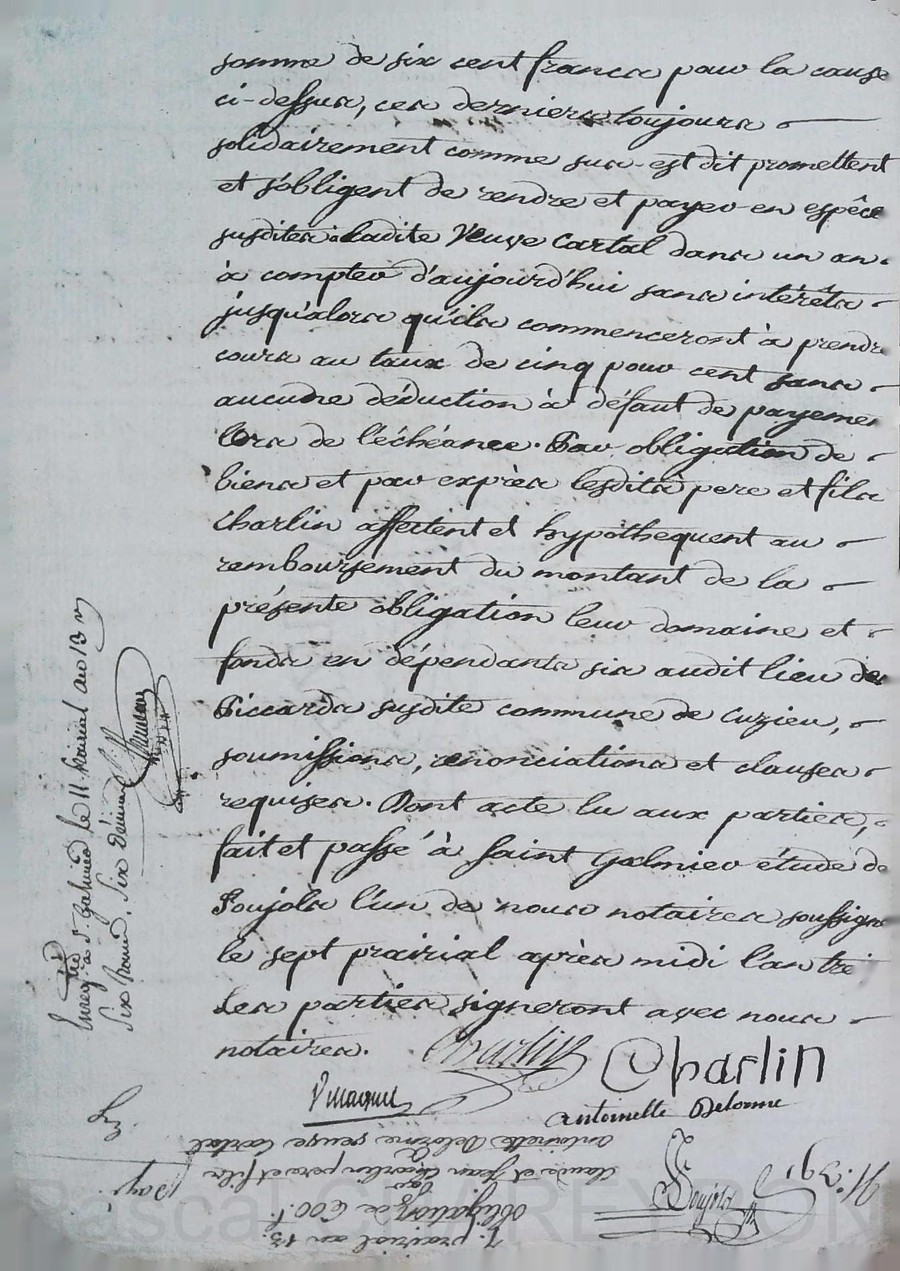 somme de six cent francs pour la cause
ci-dessus, ces derniers toujours
solidairement comme sus-est dit promettent
et s'obligent de rendre et payer en espèce
susdites à ladite Veuve Cartal dans un an
à compter d'aujourd'hui sans intérêts
jusqu'alors qu'ils commenceront à prendre
cours au taux de cinq pour cent sans
aucune déduction à défaut de payeme
lors de l'échéance. Par obligation de
biens et par exprès lesdits pere et fils
Charlin affectent et hypothequent au
remboursement du montant de la
présente obligation leur domaine et
fonds en dépendants sis audit lieu des
Piccards susdite commune de Cuzieu,
soumissions, renonciations et clauses
requises. Dont acte lu aux parties,
fait et passé à Saint Galmier étude de
Poujols l'un de nous notaires soussigné
le sept prairial après midi l'an tréi
Les parties signeront avec nous
notaires. Charlin Charlin
Antoinette Delorme
Poujols
Enreg. à St. Galmier le 11 Prairial an 13
Six francs, six décimes
7. prairial an 13.
obligation de 600 f.
par
Claude et Jean Charlin pere et fils
à
antoinette Delorme veuve Cartal
N.° 391